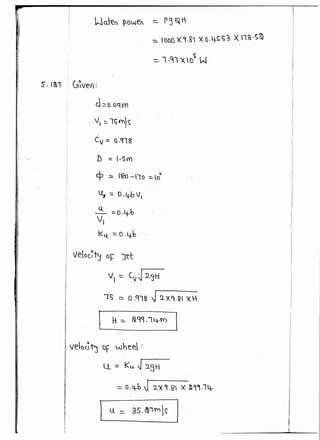 Water power = ρgQH
= 1000 X 9.81 X 0.4553 X 178.5
= 7.97 X 10⁵ W
Given:
d = 0.09m
V₁ = 75m/s
Cv = 0.978
D = 1.5m
ϕ = 180 - 170 = 10°
u = 0.46 V₁
u/V₁ = 0.46
Ku = 0.46
Velocity of Jet
V₁ = Cv √2gH
75 = 0.978 √2 X 9.81 X H
H = 299.74m
Velocity of wheel:
u = Ku √2gH
= 0.46 √2 X 9.81 X 299.74
u = 35.27m/s